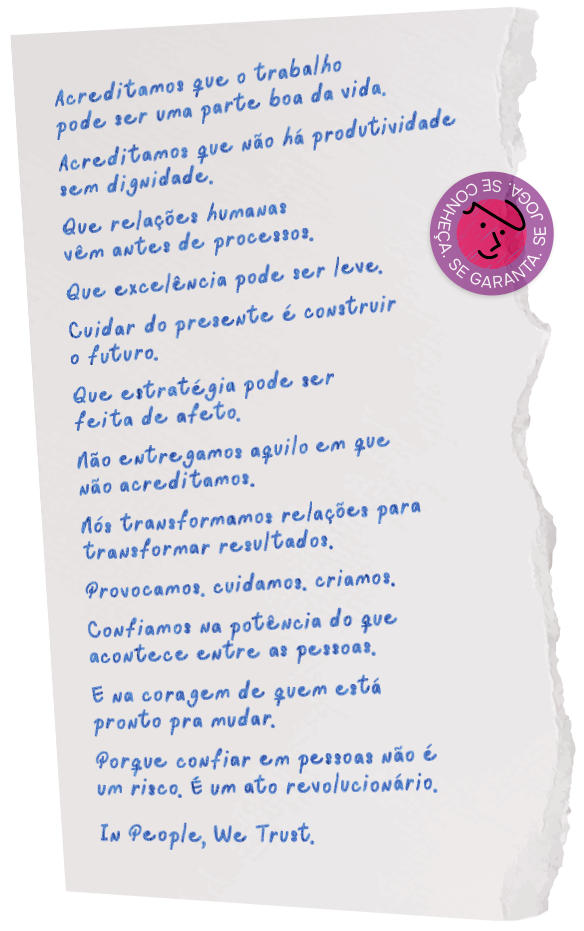 Acreditamos que o trabalho
pode ser uma parte boa da vida.
Acreditamos que não há produtividade
sem dignidade.
Que relações humanas
vêm antes de processos.
Que excelência pode ser leve.
Cuidar do presente é construir
o futuro.
Que estratégia pode ser
feita de afeto.
Não entregamos aquilo em que
não acreditamos.
Nós transformamos relações para
transformar resultados.
Provocamos, cuidamos, criamos.
Confiamos na potência do que
acontece entre as pessoas.
E na coragem de quem está
pronto pra mudar.
Porque confiar em pessoas não é
um risco. É um ato revolucionário.
In People, We Trust.
SE CONHEÇA. SE GARANTA. SE JOGA.